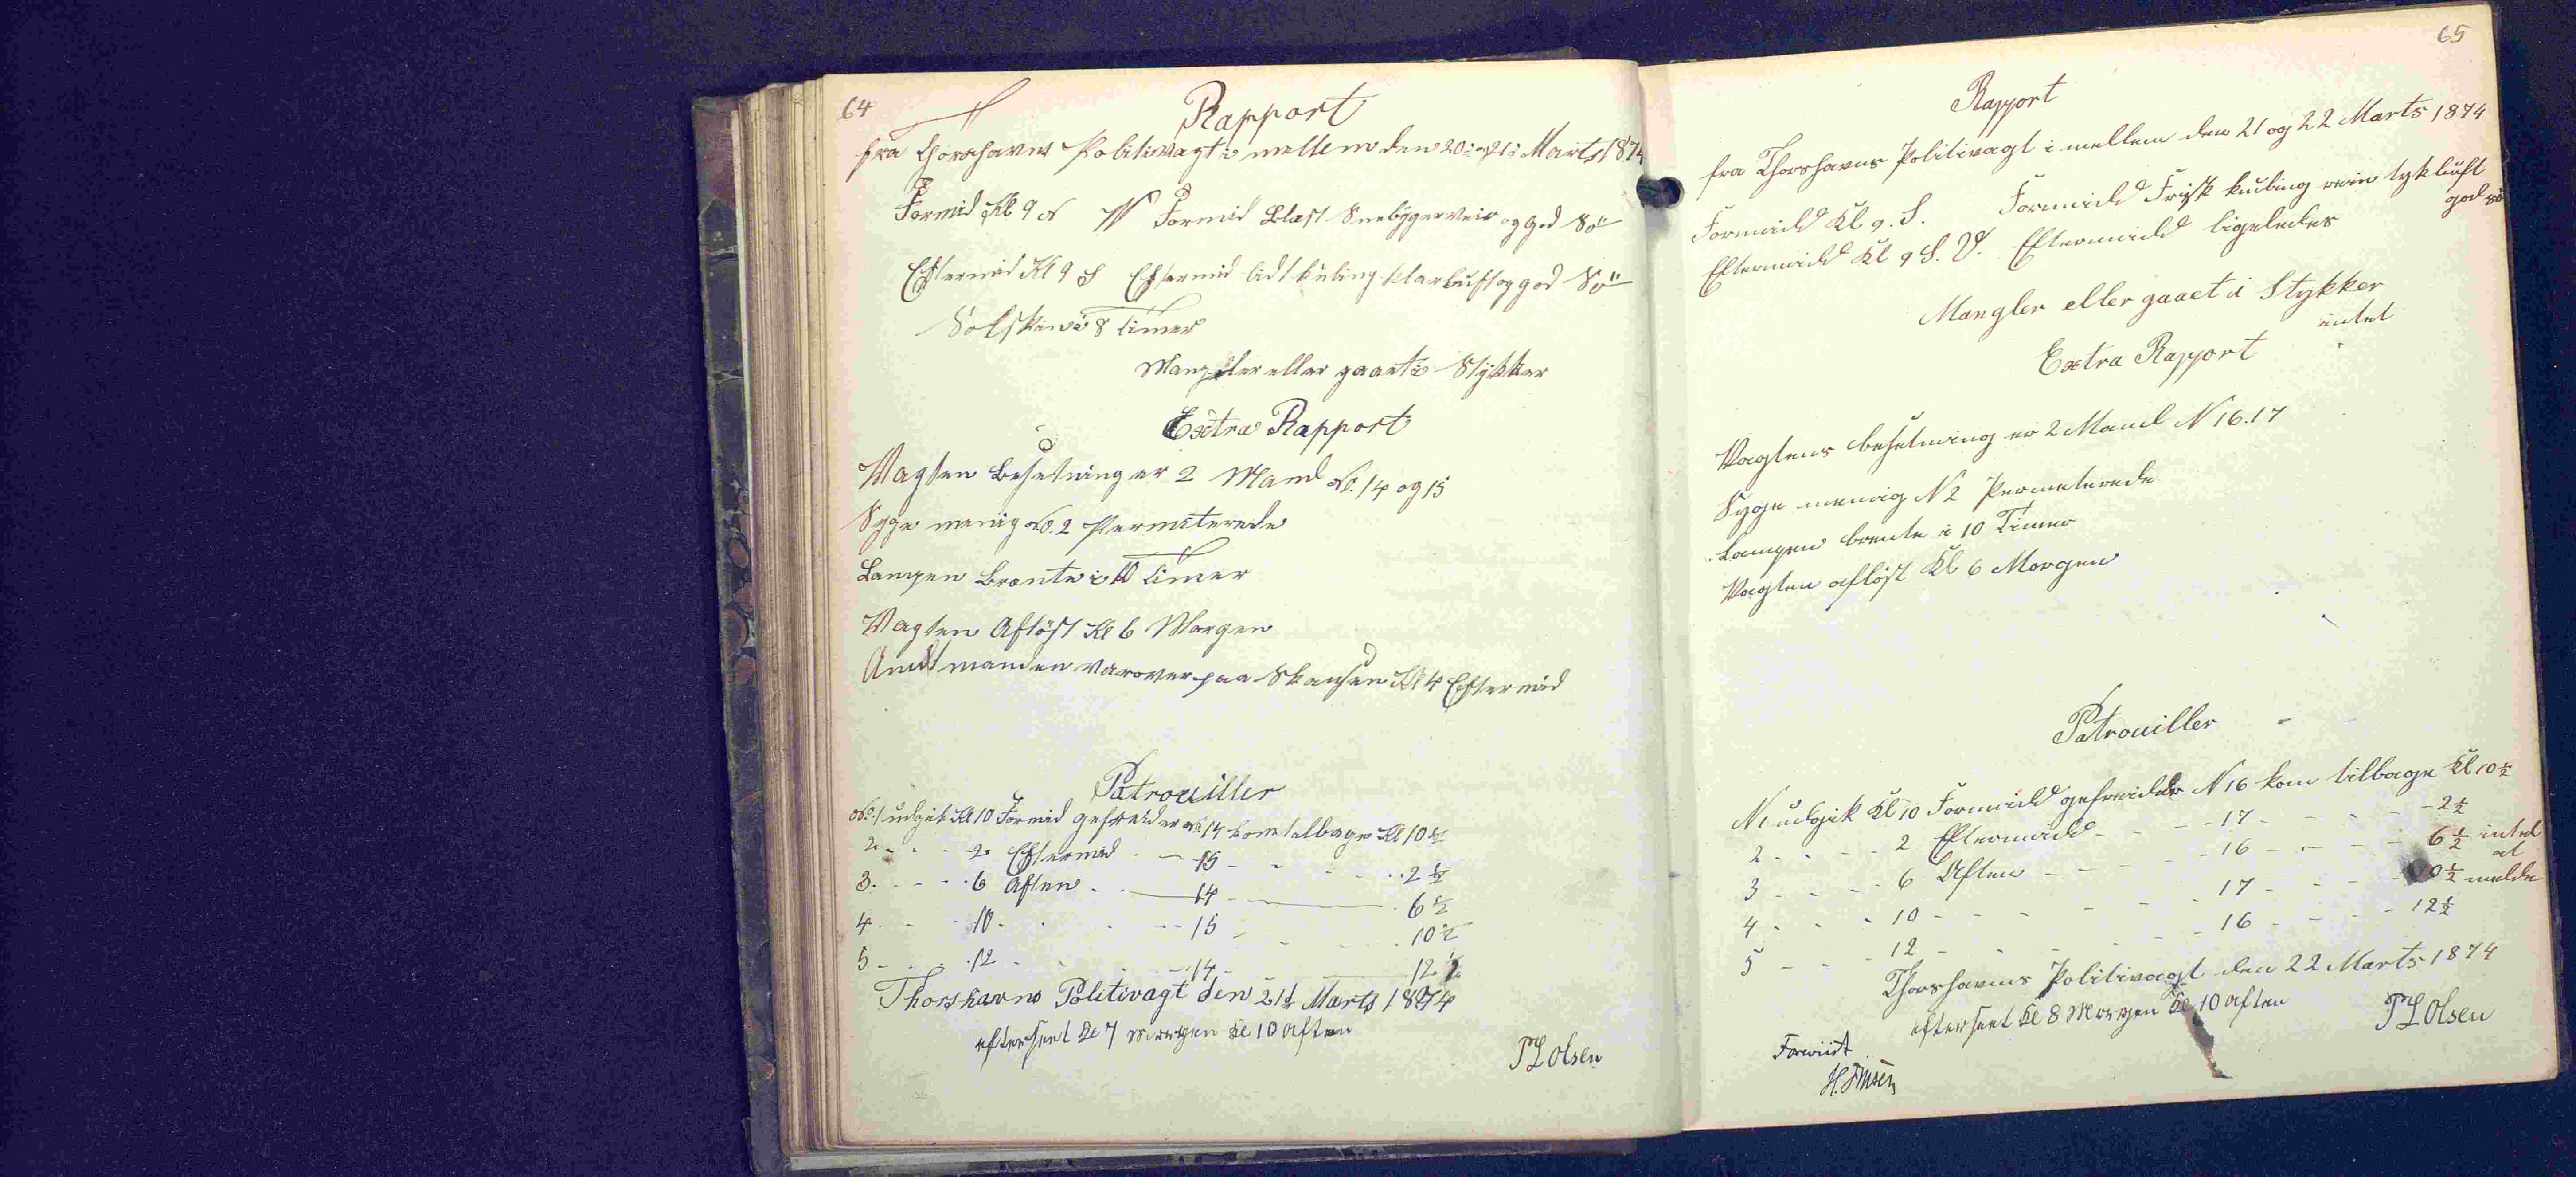 64
Rapport
fra Thorshavns Politivagt i mellem den 20 og 21 Marts 1874
Formid Kl 9 N W Formid Blæst Sneebygerveir og god Sö
Eftermid Kl 9 S Eftermid lidt kuling klarluft og god Sö
Solskin i 8 Timer
Mangler eller gaaet i Stykker
Extra Rapport
Vagten Besetning er 2 Mand No. 14 og 15
Syge menig No. 2 Permiterede
Lampen Brænte i 10 Timer
Vagten Aflöst Kl 6 Morgen
Amtmanden var over paa Skansen Kl 4 Eftermid
Patrouiller
No. 1 udgik Kl 10 Formid gefreider No 14 kom tilbage Kl 10 1/2
2 - - - 2 Eftermid - - 15 - - - 2 1/2
3 - - - 6 Aften - - 14 - 6 1/2
4 - - 10 - - - 15 - - - 10 1/2
5 - - - 12 - - - 14 - 12 1/2
Thorshavns Politivagt den 21 Marts 1874
efterseet Kl 7 Morgen Kl 10 Aften
P L Olsen
65
Rapport
fra Thorshavns Politivagt i mellem den 21 og 22 Marts 1874
Formidd Kl 9. S. Formidd Frisk kuling rein tyk luft
god sö
Eftermidd Kl 9 S. V. Eftermidd ligeledes
Mangler eller gaaet i Stykker
intet
Extra Rapport
Vagtens besetning er 2 Mand N 16. 17
Syge menig N 2 Permeterede
Lampen brente i 10 Timer
Vagten aflöst Kl 6 Morgen
Patrouiller
N 1 udgik Kl 10 Formidd gefreider N 16 kom tilbage Kl 10 1/2
2 - - - - 2 Eftermidd - - - 17 - - - - 2 1/2
3 - - - - 6 Aften - - - 16 - - - 6 1/2 intet
4 - - - 10 - - - - 17 - - - 10 1/2 at melde
5 - - - 12 - - - - 16 - - - 12 1/2
Thorshavns Politivagt den 22 Marts 1874
efterseet Kl 8 Morgen Kl 10 Aften
P L Olsen
Forevist